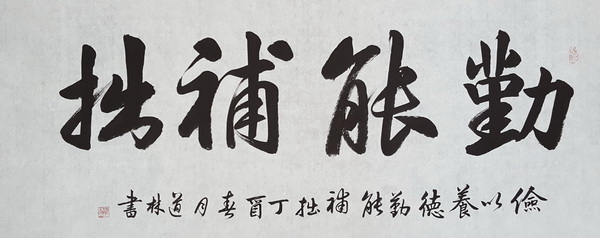 勤能補拙
儉以養德勤能補拙丁酉春月道林書